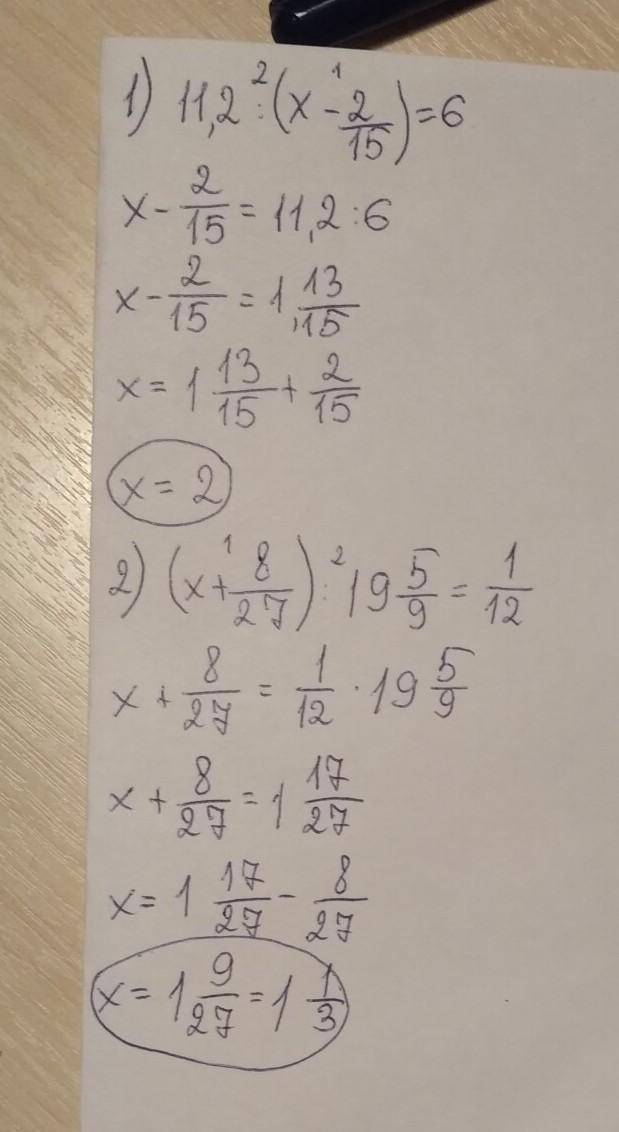 1) 11,2 :² (x -¹ 2/15) = 6
x - 2/15 = 11,2 : 6
x - 2/15 = 1, 13/15
x = 1 13/15 + 2/15
x = 2
2) (x +¹ 8/27) :² 19 5/9 = 1/12
x + 8/27 = 1/12 · 19 5/9
x + 8/27 = 1 17/27
x = 1 17/27 - 8/27
x = 1 9/27 = 1 1/3